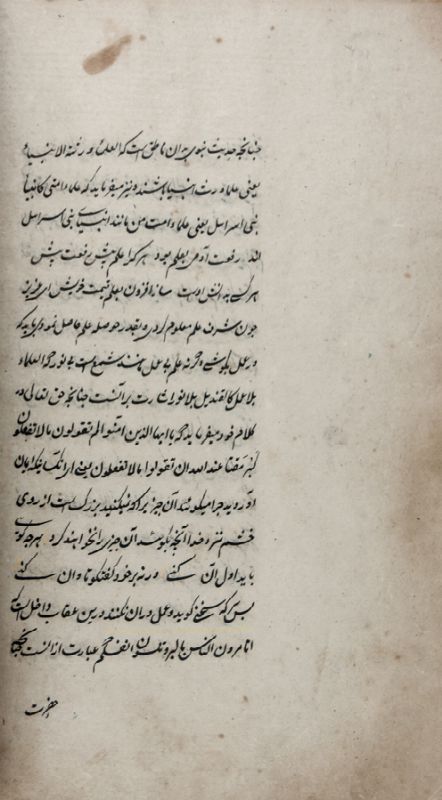 چنانچه حدیث نبوی بران ناطق است که العلماء ورثة الانبیاء
یعنی علماء ورثه انبیا باشند و نیز میفرماید که علماء امتی کانبیاء
بنی اسرائیل یعنی علماء امت من مانند انبیای بنی اسرائیل
اند رفعت آدمی بعلم بود هر کرا علم بیش رفعت بیش
هر کس به دانش است سازد افزون بعلم قیمت خویش ای عزیز
چون شرف علم معلوم کردی و بقدر حوصله علم حاصل نمودی باید که
در عمل کوشی و گرنه علم بی عمل چون شمع است بی نور که العلماء
بلا عمل کالقندیل بلا نور اشارت بر آنست چنانچه حق تعالی در
کلام خود میفرماید که یا ایها الذین امنوا لم تقولون ما لا تفعلون
کبر مقتا عند الله ان تقولوا ما لا تفعلون یعنی ای آنکسانیکه ایمان
آورده اید چرا میگوئید آن چیز را که نمیکنید بزرگ است از روی
خشم نزد خدا آنچه بگوئید آن چیز را نخواهند کرد هر چه گوئی
باید اول آن کنی ورنه بر خود گفتگو تاوان کنی
پس کسی که سخن گوید و عمل بر آن نکند در این عقاب داخل است که
اتامرون الناس بالبر و تنسون انفسکم عبارت از آنست چنانچه
حضرت